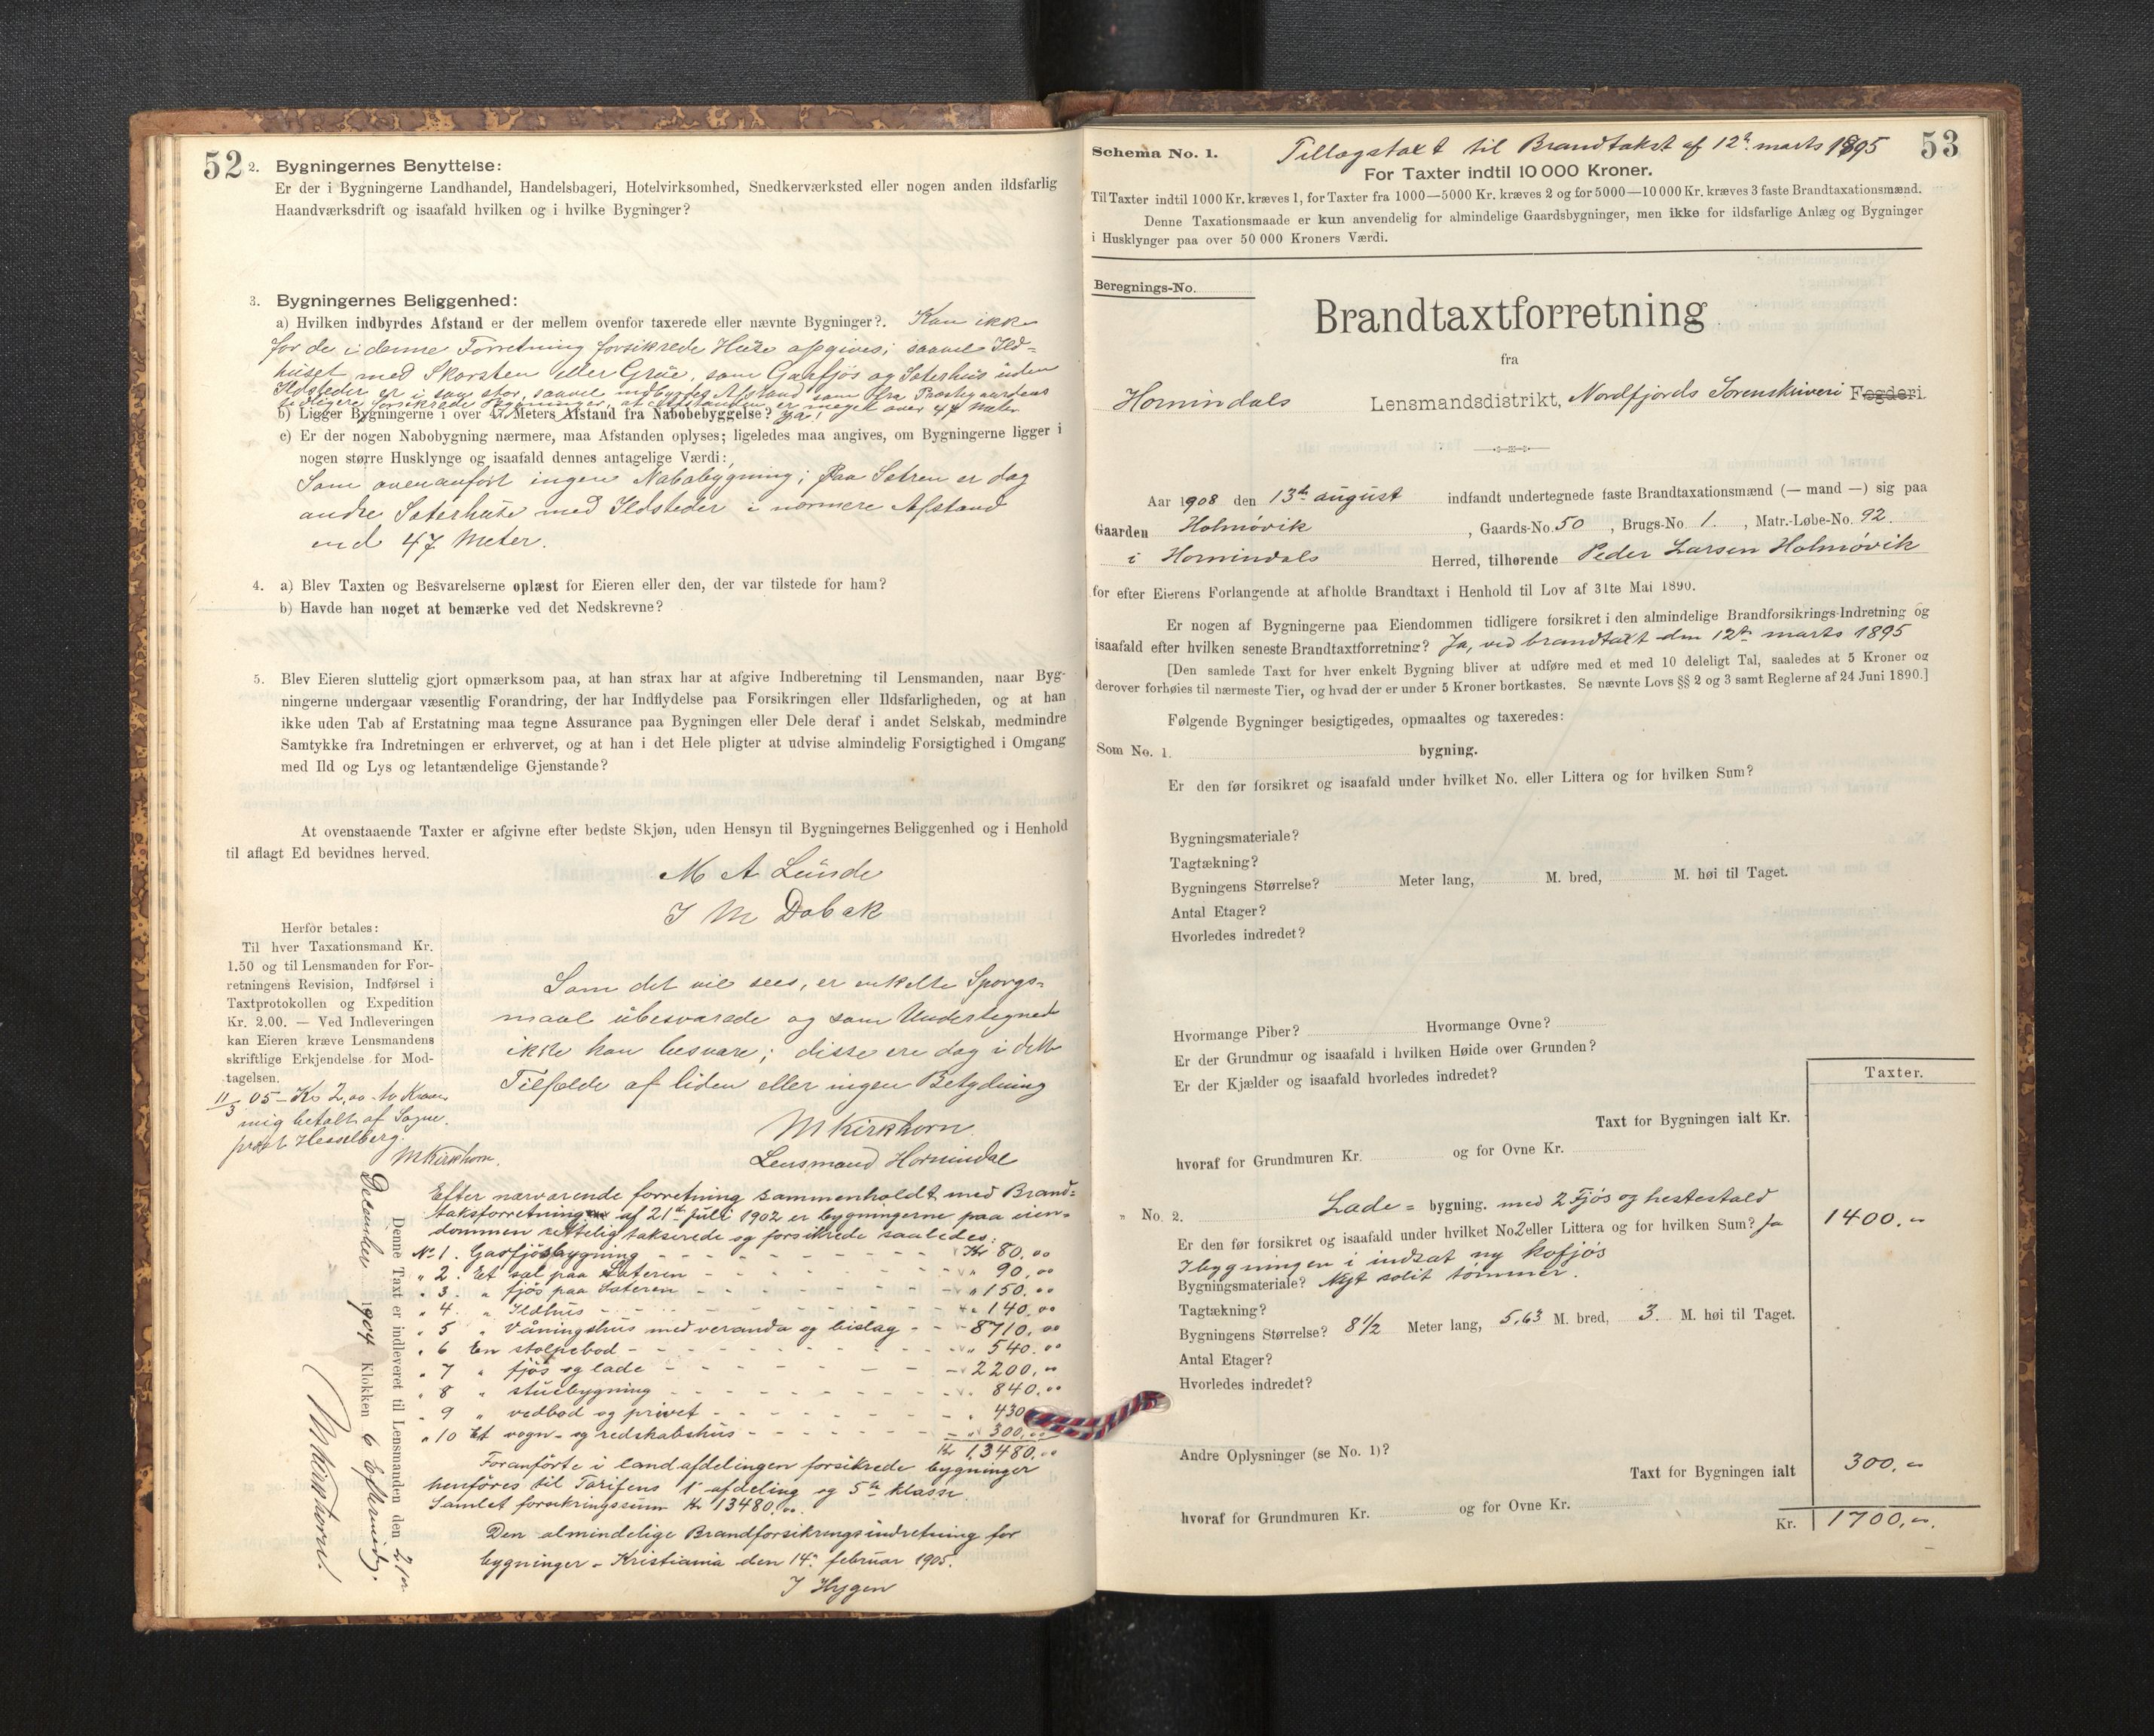 52
2. Bygningernes Benyttelse:
Er der i Bygningerne Landhandel, Handelsbageri, Hotelvirksomhed, Snedkerværksted eller nogen anden ildsfarlig
Haandværksdrift og isaafald hvilken og i hvilke Bygninger?
3. Bygningernes Beliggenhed:
a) Hvilken indbyrdes Afstand er der mellem ovenfor taxerede eller nævnte Bygninger? Kan ikke
for de i denne Forretning forsikrede Huse opgives; saavel Ild=
huset med Skorsten eller Grue, som Gasfjøs og Sæterhus uden
Ildsteder er i saa stor, saavel indbyrdes Afstand som fra Prestegaardens
tidligere forsikrede Bygninger, at Afstanden er meget over 47 Meter
b) Ligger Bygningerne i over 47 Meters Afstand fra Nabobebyggelse? Ja!
c) Er der nogen Nabobygning nærmere, maa Afstanden oplyses; ligeledes maa angives, om Bygningerne ligger i
nogen større Husklynge og isaafald dennes antagelige Værdi:
Som ovenanført ingen Nabobygning; paa Sætren er dog
andre Sæterhuse med Ildsteder i nærmere Afstand
end 47 Meter.
4. a) Blev Taxten og Besvarelserne oplæst for Eieren eller den, der var tilstede for ham?
b) Havde han noget at bemærke ved det Nedskrevne?
5. Blev Eieren sluttelig gjort opmærksom paa, at han strax har at afgive Indberetning til Lensmanden, naar Byg-
ningerne undergaar væsentlig Forandring, der har Indflydelse paa Forsikringen eller Ildsfarligheden, og at han
ikke uden Tab af Erstatning maa tegne Assurance paa Bygningen eller Dele deraf i andet Selskab, medmindre
Samtykke fra Indretningen er erhvervet, og at han i det Hele pligter at udvise almindelig Forsigtighed i Omgang
med Ild og Lys og letantændelige Gjenstande?
At ovenstaaende Taxter er afgivne efter bedste Skjøn, uden Hensyn til Bygningernes Beliggenhed og i Henhold
til aflagt Ed bevidnes herved.
M A Lunde
I M Dobak
Herfor betales:
Til hver Taxationsmand Kr.
1.50 og til Lensmanden for For-
retningens Revision, Indførsel i
Taxtprotokollen og Expedition
Kr. 2.00. — Ved Indleveringen
kan Eieren kræve Lensmandens
skriftlige Erkjendelse for Mod-
tagelsen.
11/3 05 - Kr 2,00 to Kroner
mig betalt af Sogne-
prest Hesselberg.
MKirkhorn.
Som det vil sees, er enkelte Spørgs=
maal ubesvarede og som Undertegnede
ikke kan besvare; disse ere dog i dette
Tilfælde af liden eller ingen Betydning
MKirkhorn
Lensmand Hornindal
Denne Taxt er indleveret til Lensmanden den 21de
December 1904 Klokken 6 Eftermiddag.
MKirkhorn.
Efter nærværende forretning sammenholdt med Brand=
taksforretning af 21de juli 1902 er bygningerne paa eien=
dommen rettelig takserede og forsikrede saaledes:
No 1. Gasfjøsbygning - - - Kr 80,00
" 2. Et sæl paa Sæteren - - - " 90,00
" 3. " fjøs paa Sæteren - - - " 150,00
" 4. " Ildhus - - - " 140,00
" 5 " Våningshus med veranda og bislag - - - 8710,00
" 6 En stolpebod - - - " 540,00
" 7 " fjøs og lade - - - 2200,00
" 8 " stuebygning - - - " 840,00
" 9 " vedbod og privet - - - " 430
" 10 Et vogn- og redskabshus - - - " 300,00
Kr 13480,00
Foranførte i landafdelingen forsikrede bygninger
henføres til Tarifens 1' afdeling og 5te klasse
Samlet forsikringssum Kr 13480,00.
Den almindelige Brandforsikringsindretning for
bygninger - Kristiania den 14. februar 1905.
I Hygen
53
Schema No. 1. Tillægstaxt til Brandtakst af 12te marts 1895
For Taxter indtil 10 000 Kroner.
Til Taxter indtil 1000 Kr. kræves 1, for Taxter fra 1000—5000 Kr. kræves 2 og for 5000—10 000 Kr. kræves 3 faste Brandtaxationsmænd.
Denne Taxationsmaade er kun anvendelig for almindelige Gaardsbygninger, men ikke for ildsfarlige Anlæg og Bygninger
i Husklynger paa over 50 000 Kroners Værdi.
Beregnings-No.
Brandtaxtforretning
fra
Hornindals Lensmandsdistrikt, Nordfjords Sorenskriveri Fogderi.
Aar 1908 den 13de august indfandt undertegnede faste Brandtaxationsmænd (— mand —) sig paa
Gaarden Holmøvik, Gaards-No. 50, Brugs-No. 1., Matr.-Løbe-No. 92.
i Hornindals Herred, tilhørende Peder Larsen Holmøvik
for efter Eierens Forlangende at afholde Brandtaxt i Henhold til Lov af 31te Mai 1890.
Er nogen af Bygningerne paa Eiendommen tidligere forsikret i den almindelige Brandforsikrings-Indretning og
isaafald efter hvilken seneste Brandtaxtforretning? Ja, ved brandtaxt den 12te marts 1895
[Den samlede Taxt for hver enkelt Bygning bliver at udføre med et med 10 deleligt Tal, saaledes at 5 Kroner og
derover forhøies til nærmeste Tier, og hvad der er under 5 Kroner bortkastes. Se nævnte Lovs §§ 2 og 3 samt Reglerne af 24 Juni 1890.]
Følgende Bygninger besigtigedes, opmaaltes og taxeredes:
Som No. 1. bygning.
Er den før forsikret og isaafald under hvilket No. eller Littera og for hvilken Sum?
Bygningsmateriale?
Tagtækning?
Bygningens Størrelse? Meter lang, M. bred, M. høi til Taget.
Antal Etager?
Hvorledes indredet?
Hvormange Piber? Hvormange Ovne?
Er der Grundmur og isaafald i hvilken Høide over Grunden?
Er der Kjælder og isaafald hvorledes indredet?
Taxter.
Taxt for Bygningen ialt Kr.
hvoraf for Grundmuren Kr. og for Ovne Kr.
" No. 2. Lade = bygning. med 2 Fjøs og hestestald
Er den før forsikret og isaafald under hvilket No. 2 eller Littera og for hvilken Sum? Ja 1400,-
I bygningen i indsat ny kofjøs
Bygningsmateriale? Nyt solit tømmer.
Tagtækning?
Bygningens Størrelse? 8 1/2 Meter lang, 5,63 M. bred, 3. M. høi til Taget.
Antal Etager?
Hvorledes indredet?
Andre Oplysninger (se No. 1)?
Taxt for Bygningen ialt 300,-
hvoraf for Grundmuren Kr. og for Ovne Kr.
Kr. 1700,-